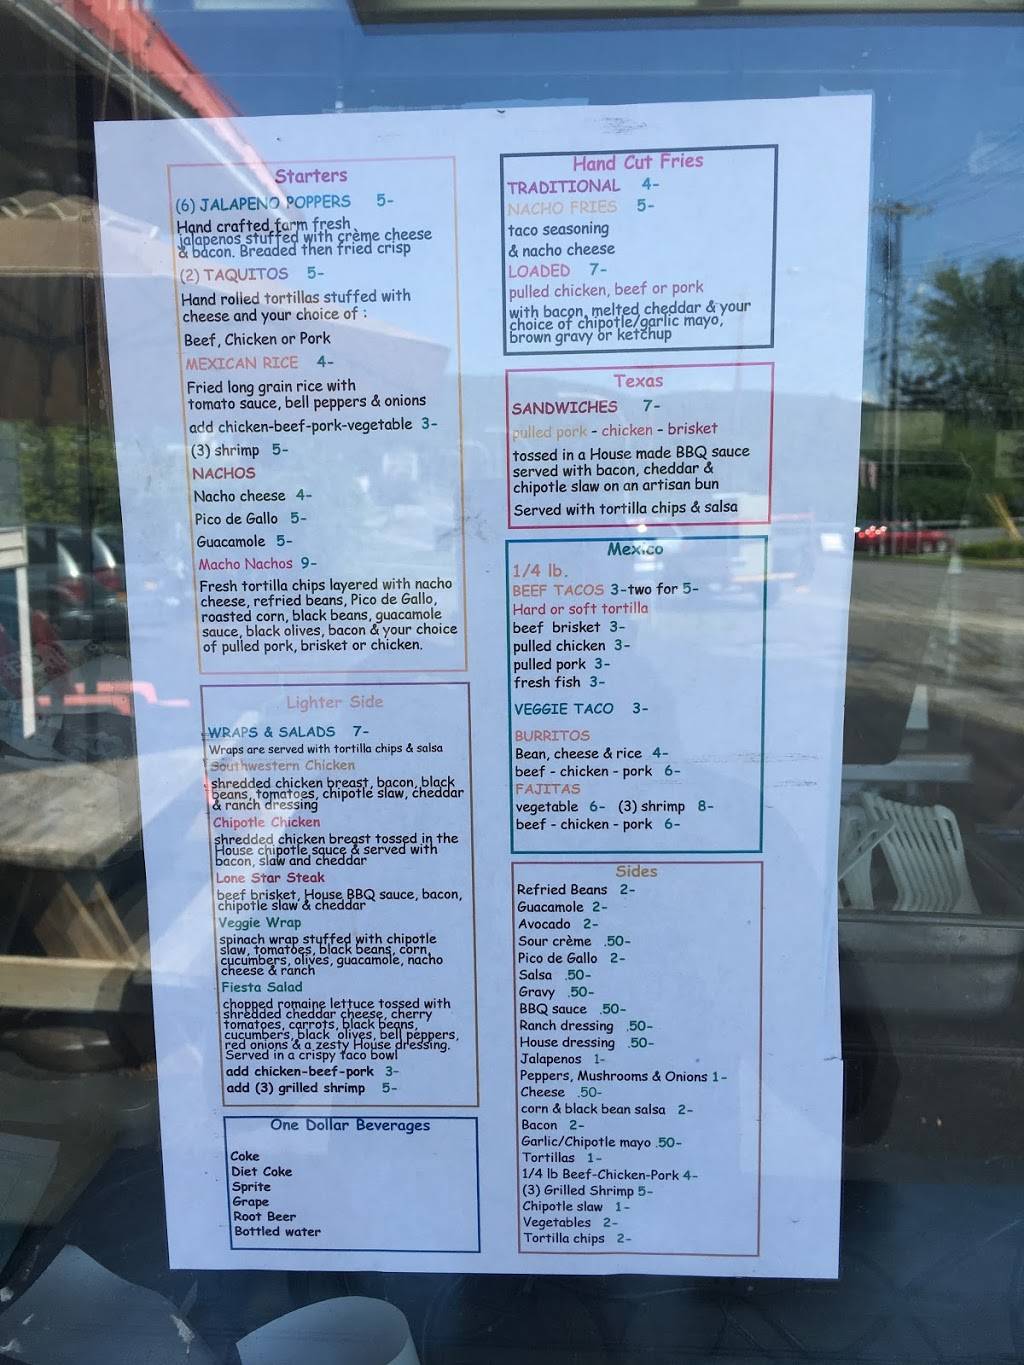 Starters
(6) JALAPENO POPPERS 5-
Hand crafted farm fresh
jalapenos stuffed with crème cheese
& bacon. Breaded then fried crisp
(2) TAQUITOS 5-
Hand rolled tortillas stuffed with
cheese and your choice of :
Beef, Chicken or Pork
MEXICAN RICE 4-
Fried long grain rice with
tomato sauce, bell peppers & onions
add chicken-beef-pork-vegetable 3-
(3) shrimp 5-
NACHOS
Nacho cheese 4-
Pico de Gallo 5-
Guacamole 5-
Macho Nachos 9-
Fresh tortilla chips layered with nacho
cheese, refried beans, Pico de Gallo,
roasted corn, black beans, guacamole
sauce, black olives, bacon & your choice
of pulled pork, brisket or chicken.
Lighter Side
WRAPS & SALADS 7-
Wraps are served with tortilla chips & salsa
Southwestern Chicken
shredded chicken breast, bacon, black
beans, tomatoes, chipotle slaw, cheddar
& ranch dressing
Chipotle Chicken
shredded chicken breast tossed in the
House chipotle sauce & served with
bacon, slaw and cheddar
Lone Star Steak
beef brisket, House BBQ sauce, bacon,
chipotle slaw & cheddar
Veggie Wrap
spinach wrap stuffed with chipotle
slaw, tomatoes, black beans, corn,
cucumbers, olives, guacamole, nacho
cheese & ranch
Fiesta Salad
chopped romaine lettuce tossed with
shredded cheddar cheese, cherry
tomatoes, carrots, black beans,
cucumbers, black olives, bell peppers,
red onions & a zesty House dressing.
Served in a crispy taco bowl
add chicken-beef-pork 3-
add (3) grilled shrimp 5-
One Dollar Beverages
Coke
Diet Coke
Sprite
Grape
Root Beer
Bottled water
Hand Cut Fries
TRADITIONAL 4-
NACHO FRIES 5-
taco seasoning
& nacho cheese
LOADED 7-
pulled chicken, beef or pork
with bacon, melted cheddar & your
choice of chipotle/garlic mayo,
brown gravy or ketchup
Texas
SANDWICHES 7-
pulled pork - chicken - brisket
tossed in a House made BBQ sauce
served with bacon, cheddar &
chipotle slaw on an artisan bun
Served with tortilla chips & salsa
Mexico
1/4 lb.
BEEF TACOS 3-two for 5-
Hard or soft tortilla
beef brisket 3-
pulled chicken 3-
pulled pork 3-
fresh fish 3-
VEGGIE TACO 3-
BURRITOS
Bean, cheese & rice 4-
beef - chicken - pork 6-
FAJITAS
vegetable 6- (3) shrimp 8-
beef - chicken - pork 6-
Sides
Refried Beans 2-
Guacamole 2-
Avocado 2-
Sour crème .50-
Pico de Gallo 2-
Salsa .50-
Gravy .50-
BBQ sauce .50-
Ranch dressing .50-
House dressing .50-
Jalapenos 1-
Peppers, Mushrooms & Onions 1-
Cheese .50-
corn & black bean salsa 2-
Bacon 2-
Garlic/Chipotle mayo .50-
Tortillas 1-
1/4 lb Beef-Chicken-Pork 4-
(3) Grilled Shrimp 5-
Chipotle slaw 1-
Vegetables 2-
Tortilla chips 2-